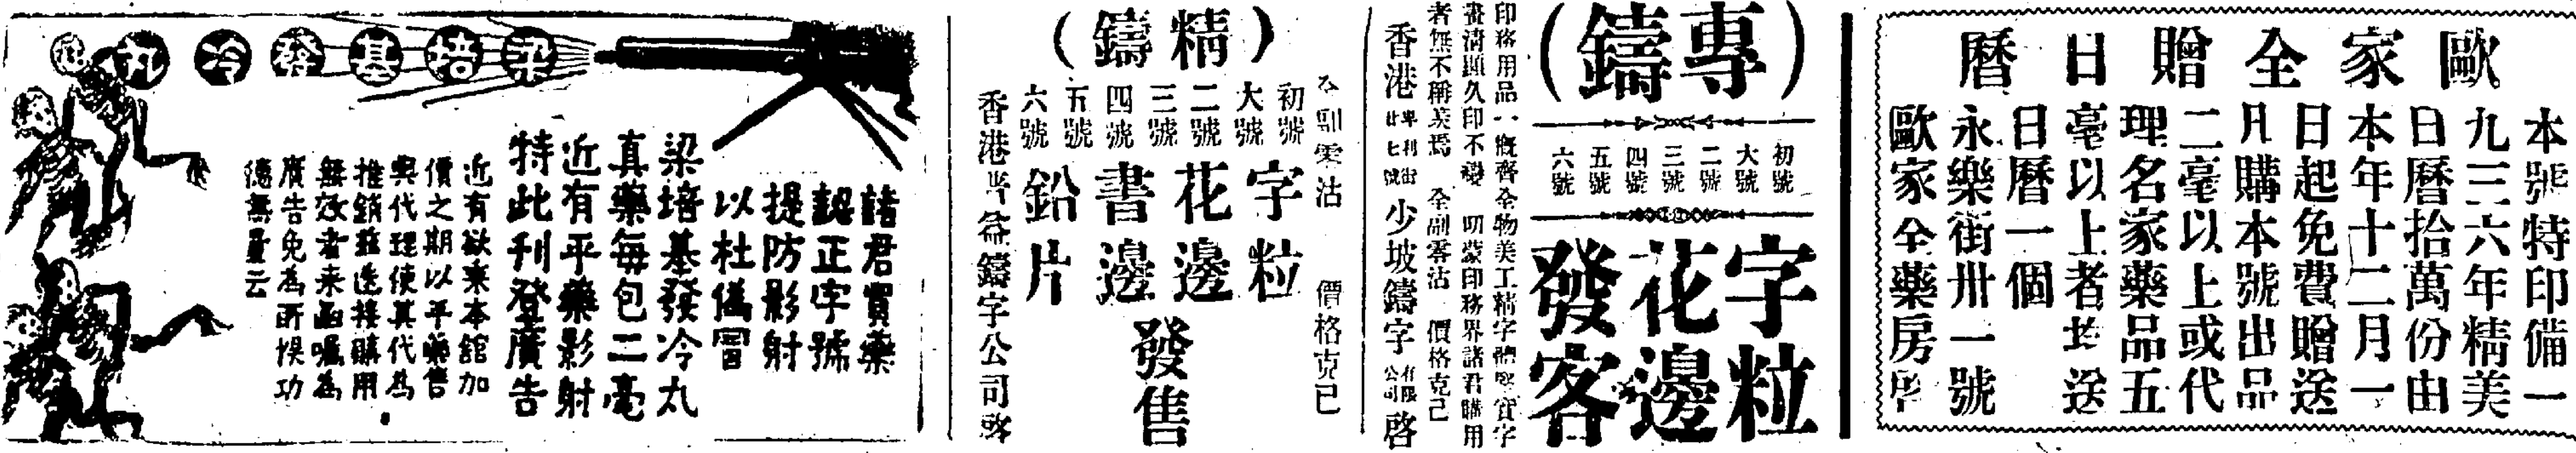 歐家全贈日曆
本號特印備一
九三六年精美
日曆拾萬份由
本年十二月一
日起免費贈送
凡購本號出品
二毫以上或代
理名家藥品五
毫以上者均送
日曆一個
永樂街卅一號
歐家全藥房啓
（專鑄）
初號
大號
二號
三號
四號
五號
六號
字粒
花邊
發客
印務用品一概齊全物美工精字體堅實字
畫清顯久印不變 明蒙印務界諸君購用
者無不稱美焉 全副零沽 價格克己
香港 少坡鑄字 有限公司 啓
（精鑄）
全副零沽 價格克己
初號
大號
二號
三號
四號
五號
六號
字粒
花邊
書邊
鉛片
發售
香港 益鑄字公司啓
梁培基發冷丸
諸君買藥
認正字號
提防影射
以杜偽冒
梁培基發冷丸
真藥每包二毫
近有平藥影射
特此刊登廣告
近有欲來本舘加
價之期以平藥售
與代理使其代為
推銷 接購用
無效者来函嘱為
廣告免為所悞功
德無量云